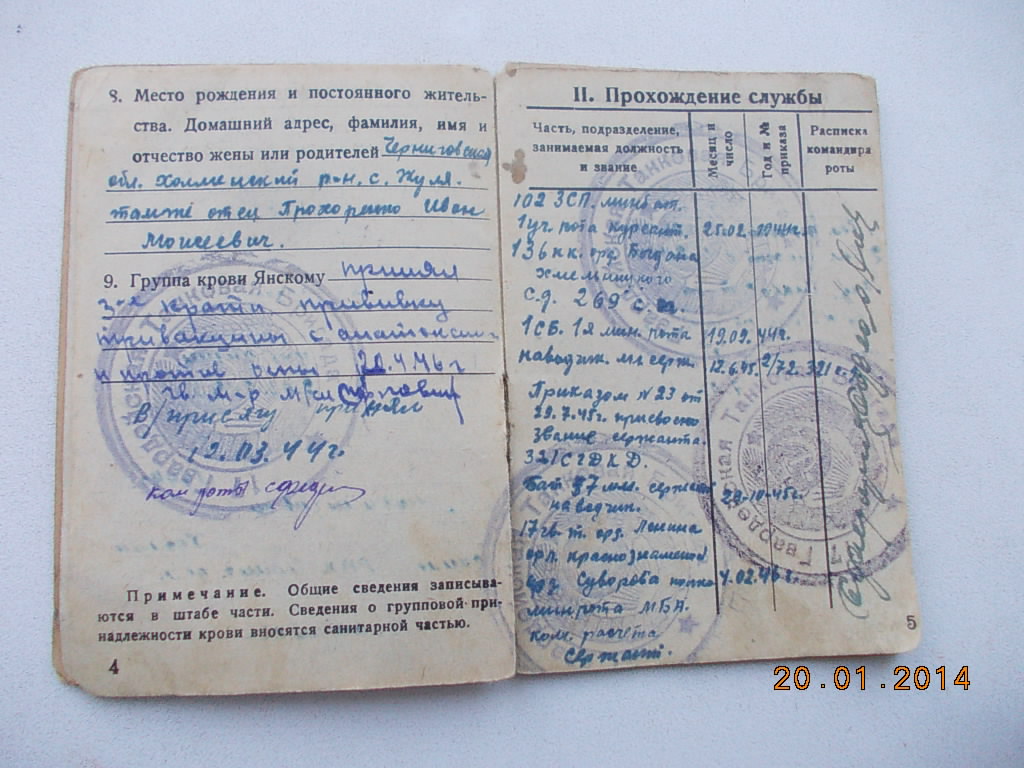 8. Место рождения и постоянного житель-
ства. Домашний адрес, фамилия, имя и
отчество жены или родителей Черниговская
обл. Холменский р-н. с. Жуля.
там же отец Прохоренко Иван
Моисеевич.
9. Группа крови Янскому принял
3-х крат прививку
20.4.46 г
гв. м-р м/с
В/присягу принял
19.03.44 г.
ком роты
Примечание. Общие сведения записыва-
ются в штабе части. Сведения о групповой при-
надлежности крови вносятся санитарной частью.
4
II. Прохождение службы
Часть, подразделение, занимаемая должность и звание
Месяц и число
Год и № приказа
Расписка командира роты
102 ЗСП. мин. бат.
1 уч. рота курсант. 25.02. 1944 г.
136 кк. орд. Богдана
Хмельницкого
с.д. 269 с.п.
1 СБ. 1я мин. рота 19.09. 44 г.
наводчик. мл. серж. 12.6.45. 2/72. 321
Приказом № 23 от
29.7.45 г. присвоено
звание сержанта.
321 СГДКД.
Бат 87 мм. сержант 29-10-45 г.
наводчик.
17 гв. т. орд. Ленина
орд. краснознаменной
орд. Суворова 4.02.46 г.
мин. рота МБА.
ком. расчета
Сержант.
5
20.01.2014